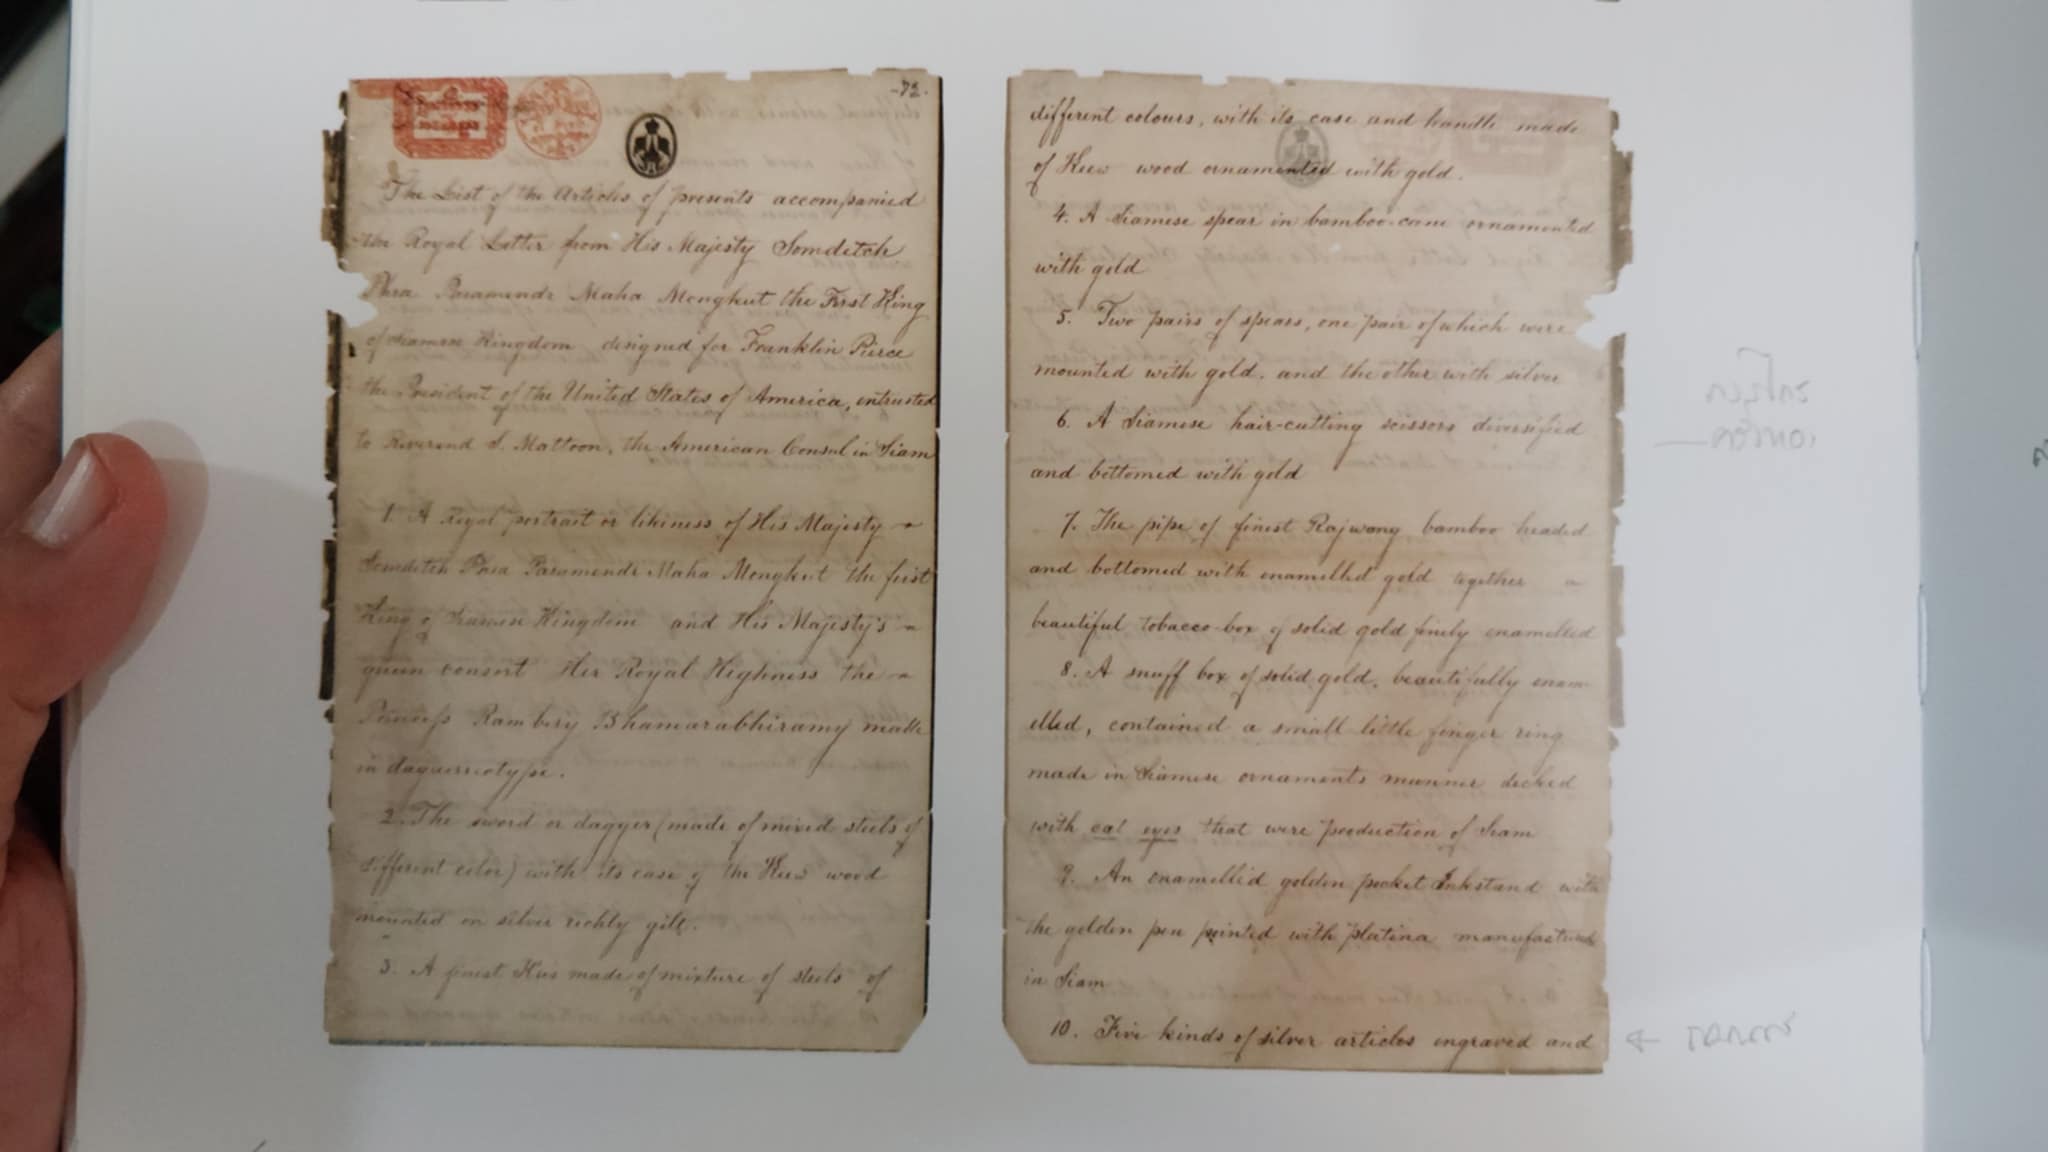 -72.
The List of the Articles of presents accompanied
the Royal Letter from His Majesty Somdetch
Phra Paramendr Maha Mongkut the First King
of Siamese Kingdom designed for Franklin Pierce
the President of the United States of America, intrusted
to Reverend S. Mattoon, the American Consul in Siam
1. A royal portrait or likiness of His Majesty
Somdetch Phra Paramendr Maha Mongkut the first
King of Siamese Kingdom and His Majesty's
queen consort Her Royal Highness the
Princess Rambery Bhamarabhiramy made
in daguerreotype.
2. The sword or dagger (made of mixed steels of
different color) with its case of the Keew wood
mounted on silver richly gilt.
3. A finest Kris made of mixture of steels of
different colours, with its case and handle made
of Keew wood ornamented with gold.
4. A Siamese spear in bamboo-cane ornamented
with gold
5. Two pairs of spears, one pair of which were
mounted with gold. and the other with silver
6. A Siamese hair-cutting scissors diversified
and bottomed with gold
7. The pipe of finest Rajwang bamboo headed
and bottomed with enamelled gold together
beautiful tobacco-box of solid gold finely enamelled
8. A snuff box of solid gold, beautifully enam-
elled, contained a small little finger ring
made in Siamese ornaments manner decked
with cat eyes that were production of Siam
9. An enamelled golden pocket Inkstand with
the golden pen pointed with platina manufactured
in Siam
10. Five kinds of silver articles engraved and